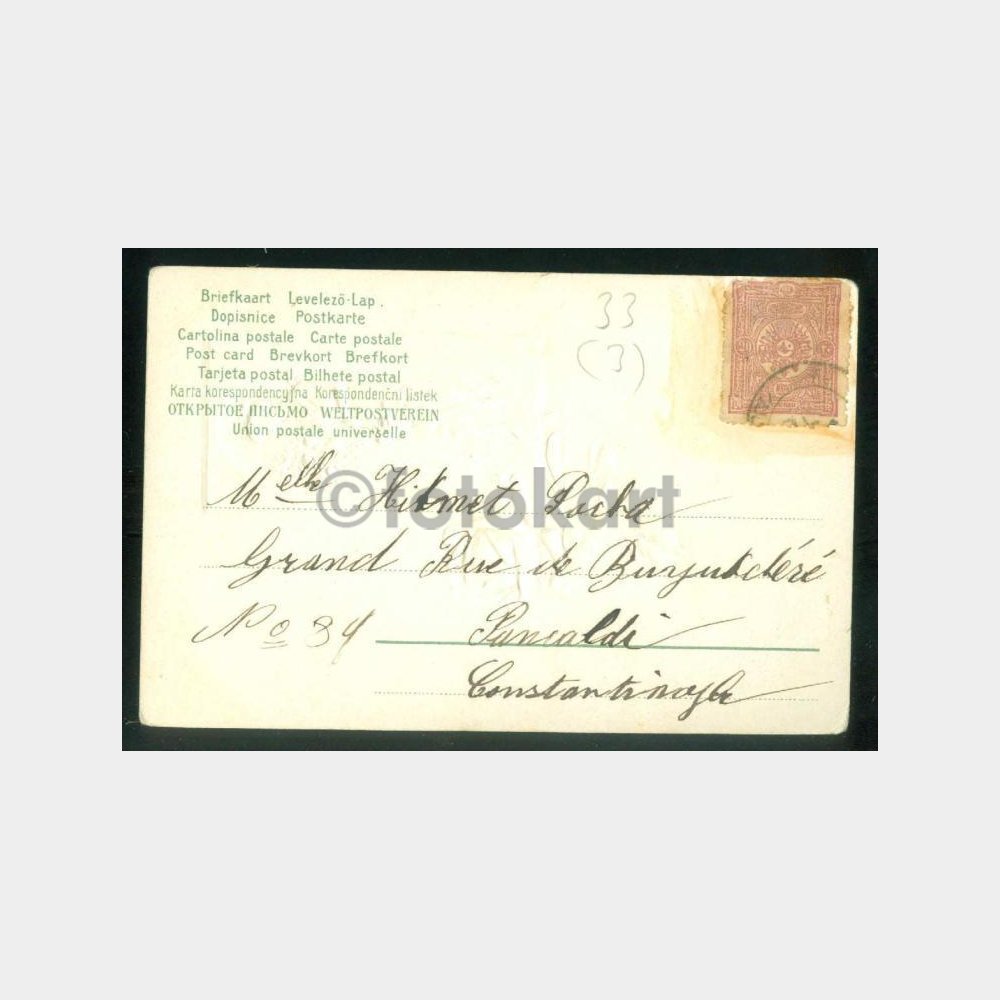 Briefkaart Levelező-Lap.
Dopisnice Postkarte
Cartolina postale Carte postale
Post card Brevkort Brefkort
Tarjeta postal Bilhete postal
Karta korespondencyjna Korespondenční listek
ОТКРЫТОЕ ПИСЬМО WELTPOSTVEREIN
Union postale universelle
33
(3)
©fotokart
Melle Hikmet
Grand Rue de Buyukdéré
No 84 Pancaldi
Constantinople